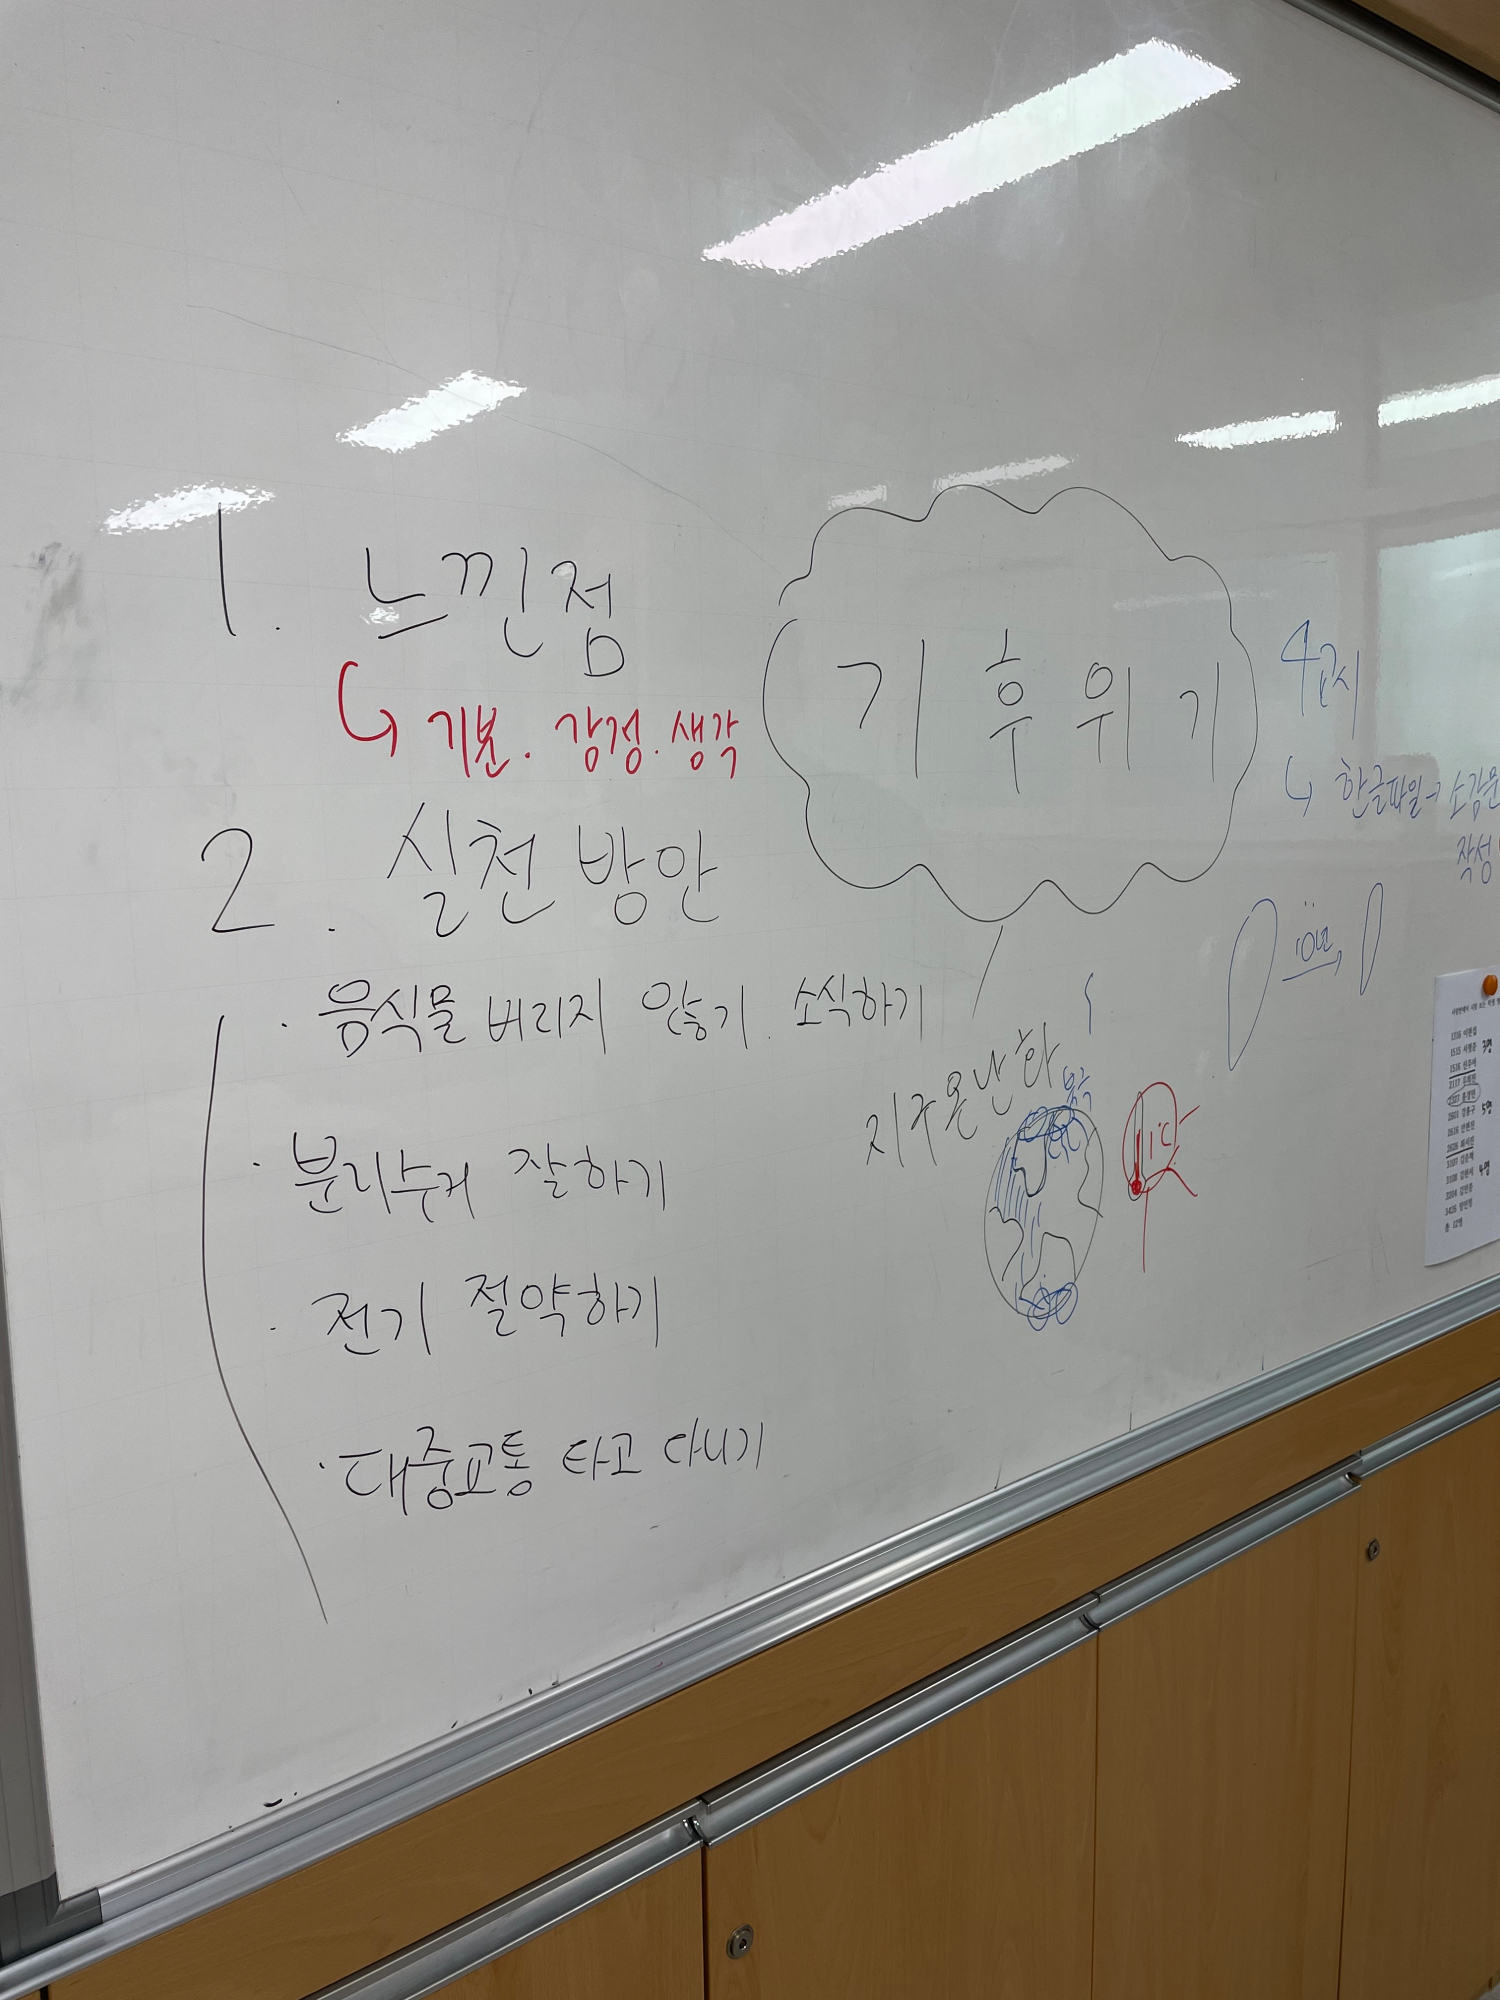 1. 느낀점
↳ 기분. 감정. 생각
2. 실천 방안
· 음식물 버리지 않기. 소식하기
· 분리수거 잘하기
· 전기 절약하기
· 대중교통 타고 다니기
기후위기
지구온난화
북극
1℃
4교시
↳ 한글파일→ 소감문
작성
10년
3명
5명
4명
총 12명